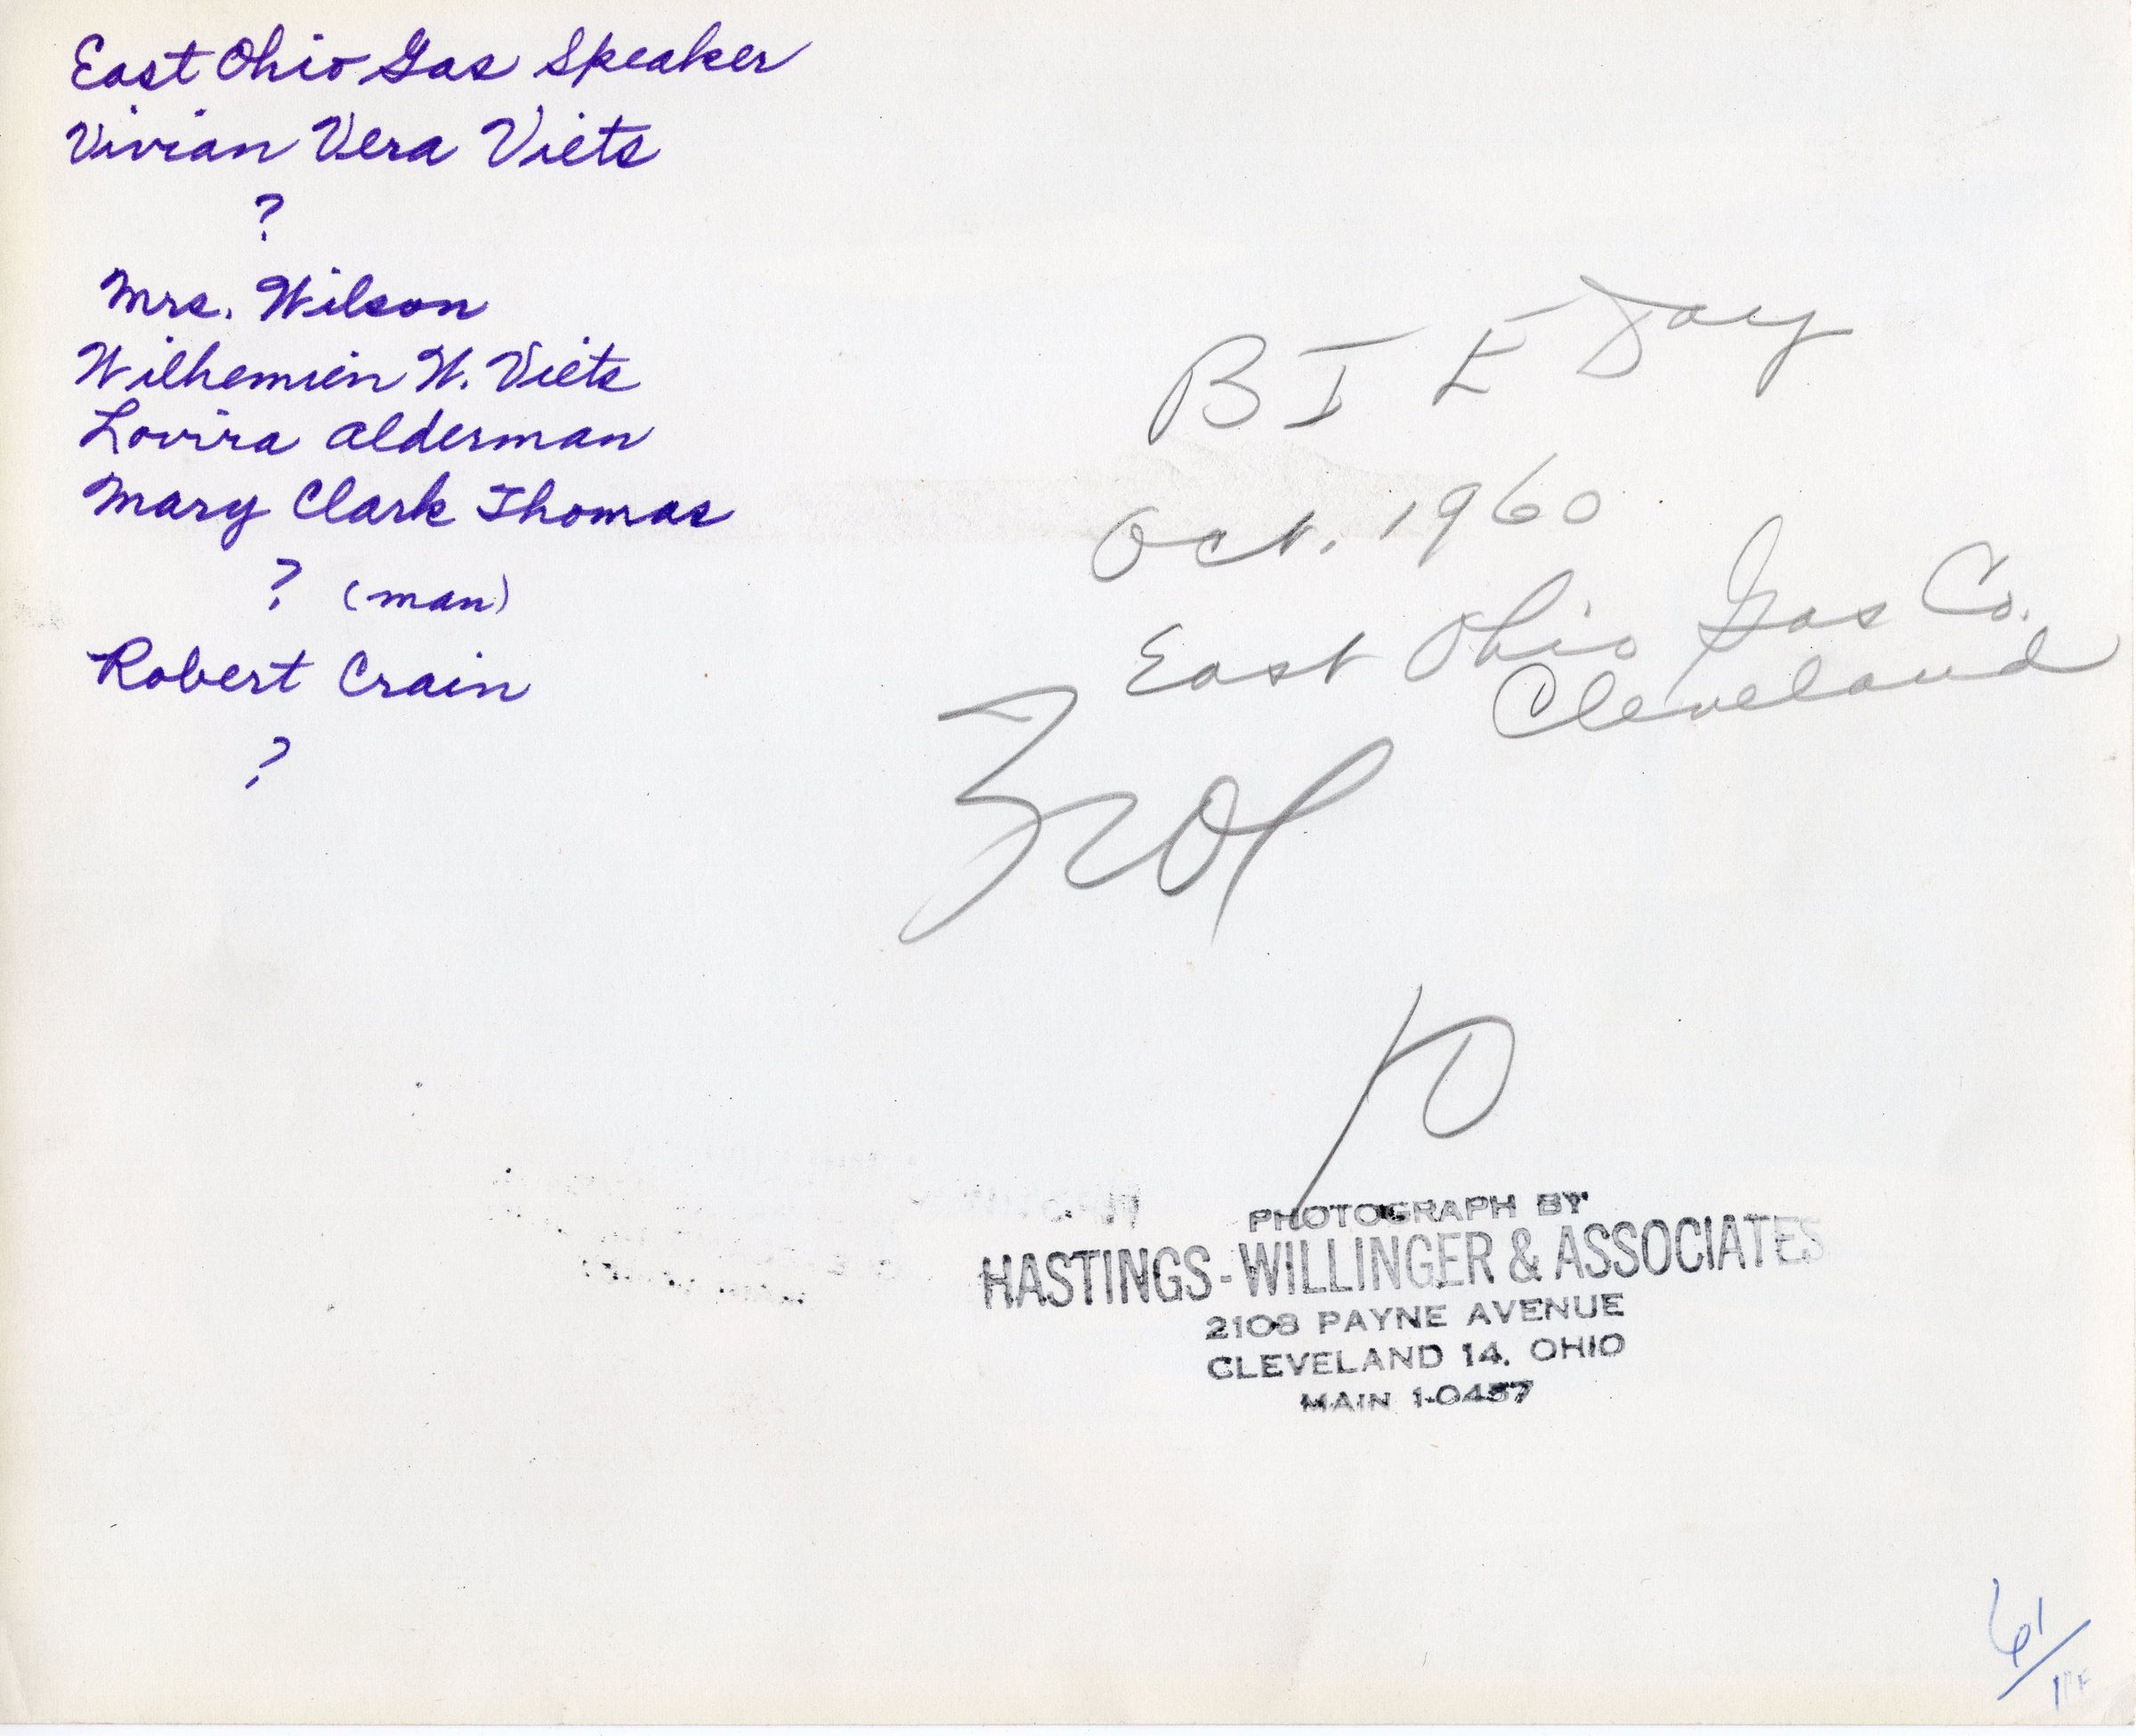 East Ohio Gas Speaker
Vivian Vera Viets
?
Mrs. Wilson
Wilhemien W. Viets
Lovira Alderman
Mary Clark Thomas
? (man)
Robert Crain
?
B I E Day
Oct. 1960
East Ohio Gas Co.
Cleveland
PHOTOGRAPH BY
HASTINGS-WILLINGER & ASSOCIATES
2108 PAYNE AVENUE
CLEVELAND 14, OHIO
MAIN 1-0457
61/